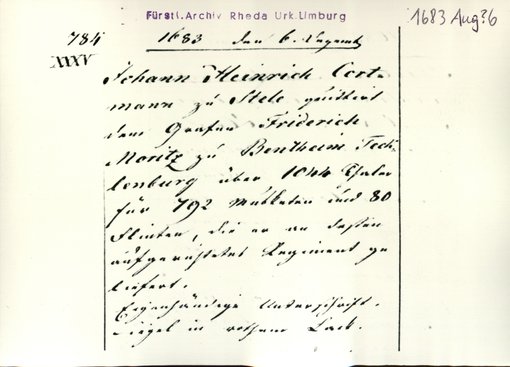 Fürstl.Archiv Rheda Urk.Limburg
1683 Aug?6
784
XXXV
1683 den 6. Augusti
Johann Heinrich Cort-
mann zu Stele quittiert
dem Grafen Friderich
Moritz zu Bentheim Teck-
lenburg über 1044 Thaler
für 792 Musketen und 80
Flinten, die er an dessen
aufgerichtetes Regiment ge
liefert.
Eigenhändige Unterschrift.
Siegel in rothem Lack.